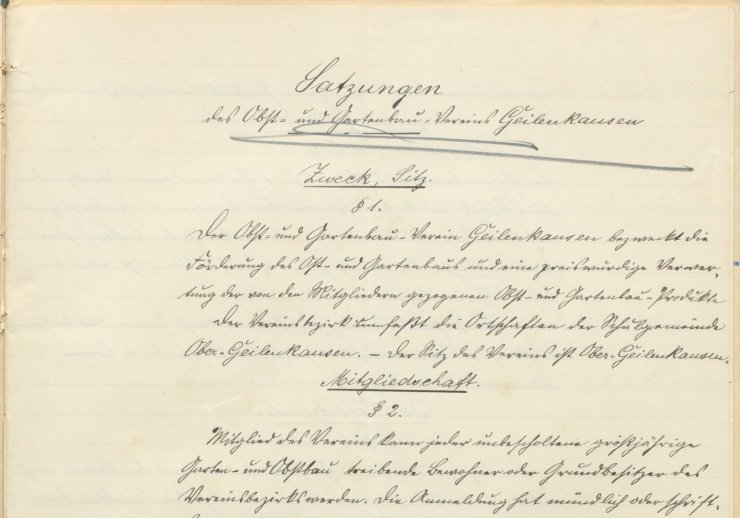 Satzungen
des Obst- und Gartenbau-Vereins Geilenkausen
Zweck, Sitz.
§ 1.
Der Obst- und Gartenbau-Verein Geilenkausen bezweckt die
Förderung des Obst- und Gartenbaus und eine preiswürdige Verwer-
tung der von den Mitgliedern gezogenen Obst- und Gartenbau-Produkte
Der Vereinsbezirk umfaßt die Ortschaften der Schulgemeinde
Ober-Geilenkausen. – Der Sitz des Vereins ist Ober-Geilenkausen.
Mitgliedschaft.
§ 2.
Mitglied des Vereins kann jeder unbescholtene großjährige
Garten- und Obstbau treibende Bewohner oder Grundbesitzer des
Vereinsbezirks werden. Die Anmeldung hat mündlich oder schrift-